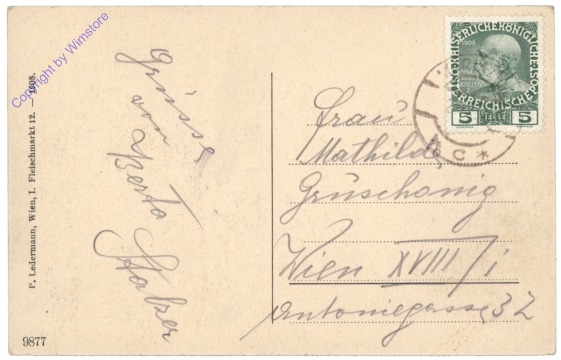 Copyright by Wimstore
P. Ledermann, Wien, I. Fleischmarkt 12. — 1908.
9877
Grüsse
von
Berta
Frau
Mathilde
Grüschonig
Wien XVIII/1
Antoniegasse 32
KAISERLICHE KÖNIGLICHE
ÖSTERREICHISCHE
1908
5 HELLER 5